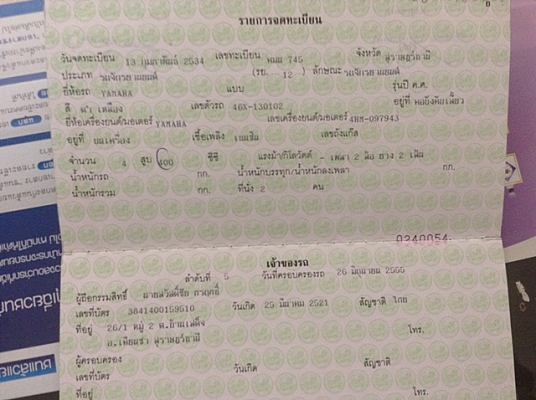 รายการจดทะเบียน
วันจดทะเบียน 13 กุมภาพันธ์ 2534 เลขทะเบียน 745 จังหวัด สุราษฎร์ธานี
ประเภท รถจักรยานยนต์ (รย. 12 ) ลักษณะ รถจักรยานยนต์
ยี่ห้อรถ YAMAHA แบบ รุ่นปี ค.ศ.
สี ดำ เหลือง เลขตัวรถ 46X-130102 อยู่ที่ คอ
ยี่ห้อเครื่องยนต์/มอเตอร์ YAMAHA เลขเครื่องยนต์/มอเตอร์ 4HM-097943
อยู่ที่ เครื่อง เชื้อเพลิง เบนซิน เลขถังแก๊ส
จำนวน 4 สูบ 400 ซีซี แรงม้า/กิโลวัตต์ - เพลา 2 ล้อ ยาง 2 เส้น
น้ำหนักรถ กก. น้ำหนักบรรทุก/น้ำหนักลงเพลา กก.
น้ำหนักรวม กก. ที่นั่ง 2 คน
0340054
เจ้าของรถ
ลำดับที่ 5 วันที่ครอบครองรถ 26 มิถุนายน 2555
ผู้ถือกรรมสิทธิ์
เลขที่บัตร 3841400159510 วันเกิด 25 มีนาคม 2521 สัญชาติ ไทย
ที่อยู่ 26/1 หมู่ 2 โทร.
สุราษฎร์ธานี
ผู้ครอบครอง
เลขที่บัตร วันเกิด สัญชาติ
ที่อยู่ โทร.